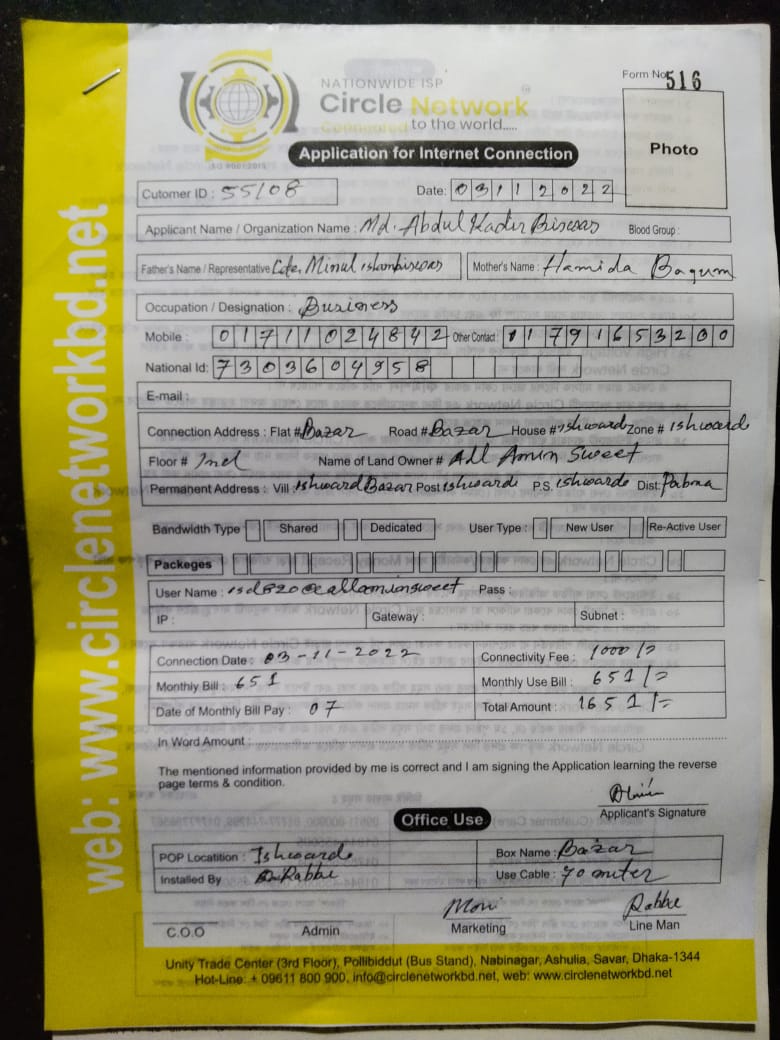 NATIONWIDE ISP
Circle Network
Connected to the world.....
ISO 9001:2015
Form No 516
Photo
Application for Internet Connection
Cutomer ID : 55108
Date: 03112022
Applicant Name / Organization Name : Md. Abdul Kadir Biswas Blood Group :
Father's Name / Representative Late. Minul islam biswas Mother's Name : Hamida Bagum
Occupation / Designation : Business
Mobile : 01711024842 Other Contact : 11791653200
National Id: 7303604958
E-mail :
Connection Address : Flat # Bazar Road # Bazar House # ishwardi Zone # ishwardi
Floor # 2nd Name of Land Owner # All Amin Sweet
Permanent Address : Vill ishwardi Bazar Post ishwardi P.S. ishwardi Dist: Pabna
Bandwidth Type Shared Dedicated User Type : New User Re-Active User
Packeges
User Name : Pass :
IP : Gateway : Subnet :
Connection Date : 03-11-2022 Connectivity Fee : 1000/=
Monthly Bill : 651 Monthly Use Bill : 651/=
Date of Monthly Bill Pay : 07 Total Amount : 1651/=
In Word Amount :
The mentioned information provided by me is correct and I am signing the Application learning the reverse
page terms & condition.
Applicant's Signature
Office Use
POP Locatition : Ishwardi Box Name : Bazar
Installed By Rabbe Use Cable : 70 miter
Moni Rabbe
C.O.O Admin Marketing Line Man
Unity Trade Center (3rd Floor), Pollibiddut (Bus Stand), Nabinagar, Ashulia, Savar, Dhaka-1344
Hot-Line: + 09611 800 900, info@circlenetworkbd.net, web: www.circlenetworkbd.net
web: www.circlenetworkbd.net